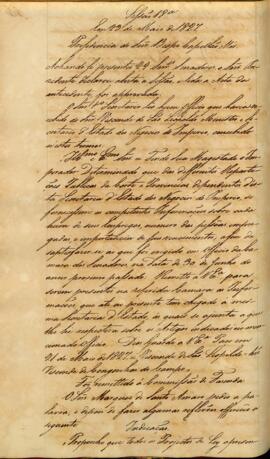 Sessão 18ª
Em 23 de Maio de 1827
Presidencia do Snr Bispo Capellão Mór
Achando-se presentes 29 Snrs Senadores, o Snr Pre-
sidente declarou aberta a Sessão, e lida a Acta da
antecedente, foi approvada.
O Snr 1º Secretario leo hum Officio que havia rece-
bido do Visconde de São Leopoldo, Ministro e Se-
cretario d'Estado dos Negocios do Imperio, concebido
nestes termos:
Illmo e Exmo Snr = Tendo Sua Magestade o Im-
perador Determinado que das differentes Reparti-
ções Publicas da Corte e Provincias dependentes des-
ta Secretaria d'Estado dos Negocios do Imperio, se
as competentes Informações sobre cada
hum de seus Empregos, numero das pessoas empre-
gadas, e importancia de seus vencimentos, afim de
as que foi exigido em Officio da Ca-
mara dos Senadores na data de 30 de Junho do
anno proximo passado. Remetto a V. Exª para
serem presentes na referida Camara as Infor-
mações que até ao presente tem chegado a esta
Secretaria d'Estado, ás quaes se ajunta o que
lhe diz respeito sobre os Artigos indicados no men-
cionado Officio. Deos Guarde a V. Exª Paço em
21 de Maio de 1827 = Visconde de São Leopoldo = Snr
Visconde de Congonhas do Campo.
Foi remettido á Commissão de Fazenda
O Snr Marquez de Santo Amaro pedio a pa-
lavra, e depois de fazer algumas reflexões offereceo a
seguinte
Indicação
Proponho que todos os Projectos de Ley apresen-